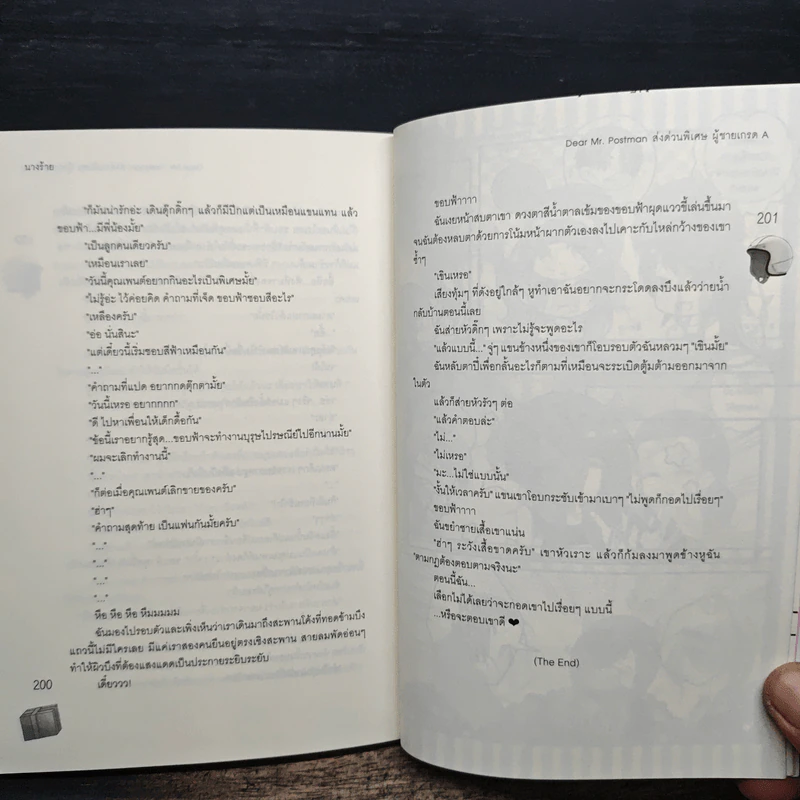 นางร้าย
"ก็มันน่ารักอ่ะ เดินดุ๊กดิ๊กๆ แล้วก็มีปีกแต่เป็นเหมือนแขนแทน แล้ว
ขอบฟ้า...มีพี่น้องมั้ย"
"เป็นลูกคนเดียวครับ"
"เหมือนเราเลย"
"วันนี้คุณเพนต์อยากกินอะไรเป็นพิเศษมั้ย"
"ไม่รู้อ่ะ ไว้ค่อยคิด คำถามที่เจ็ด ขอบฟ้าชอบสีอะไร"
"เหลืองครับ"
"อ่อ นั่นสินะ"
"แต่เดี๋ยวนี้เริ่มชอบสีฟ้าเหมือนกัน"
"..."
"คำถามที่แปด อยากกดตุ๊กตามั้ย"
"วันนี้เหรอ อยากกกก"
"ดี ไปหาเพื่อนให้เด็กดื้อกัน"
"ข้อนี้เราอยากรู้สุด...ขอบฟ้าจะทำงานบุรุษไปรษณีย์ไปอีกนานมั้ย"
"ผมจะเลิกทำงานนี้"
"..."
"ก็ต่อเมื่อคุณเพนต์เลิกขายของครับ"
"ฮ่าๆ"
"คำถามสุดท้าย เป็นแฟนกันมั้ยครับ"
"..."
"..."
"..."
"..."
หือ หือ หือ หืมมมมม
ฉันมองไปรอบตัวและเพิ่งเห็นว่าเราเดินมาถึงสะพานโค้งที่ทอดข้ามบึง
แถวนี้ไม่มีใครเลย มีแค่เราสองคนยืนอยู่ตรงเชิงสะพาน สายลมพัดอ่อนๆ
ทำให้ผิวบึงที่ต้องแสงแดดเป็นประกายระยิบระยับ
เดี๋ยววว!
200
Dear Mr. Postman ส่งด่วนพิเศษ ผู้ชายเกรด A
201
ขอบฟ้าาาา
ฉันเงยหน้าสบตาเขา ดวงตาสีน้ำตาลเข้มของขอบฟ้าผุดแววขี้เล่นขึ้นมา
จนฉันต้องหลบตาด้วยการโน้มหน้าผากตัวเองลงไปเคาะกับไหล่กว้างของเขา
ซ้ำๆ
"เขินเหรอ"
เสียงทุ้มๆ ที่ดังอยู่ใกล้ๆ หูทำเอาฉันอยากจะกระโดดลงบึงแล้วว่ายน้ำ
กลับบ้านตอนนี้เลย
ฉันส่ายหัวดิ๊กๆ เพราะไม่รู้จะพูดอะไร
"แล้วแบบนี้..." จู่ๆ แขนข้างหนึ่งของเขาก็โอบรอบตัวฉันหลวมๆ "เขินมั้ย"
ฉันหลับตาปี๋เพื่อกลั้นอะไรก็ตามที่เหมือนจะระเบิดตู้มต้ามออกมาจาก
ในตัว
แล้วก็ส่ายหัวรัวๆ ต่อ
"แล้วคำตอบล่ะ"
"ไม่..."
"ไม่เหรอ"
"มะ...ไม่ใช่แบบนั้น"
"งั้นให้เวลาครับ" แขนเขาโอบกระชับเข้ามาเบาๆ "ไม่พูดก็กอดไปเรื่อยๆ"
ขอบฟ้าาาา
ฉันขยำชายเสื้อเขาแน่น
"ฮ่าๆ ระวังเสื้อขาดครับ" เขาหัวเราะ แล้วก็ก้มลงมาพูดข้างหูฉัน
"ตามกฎต้องตอบตามจริงนะ"
ตอนนี้ฉัน...
เลือกไม่ได้เลยว่าจะกอดเขาไปเรื่อยๆ แบบนี้
...หรือจะตอบเขาดี ❤
(The End)